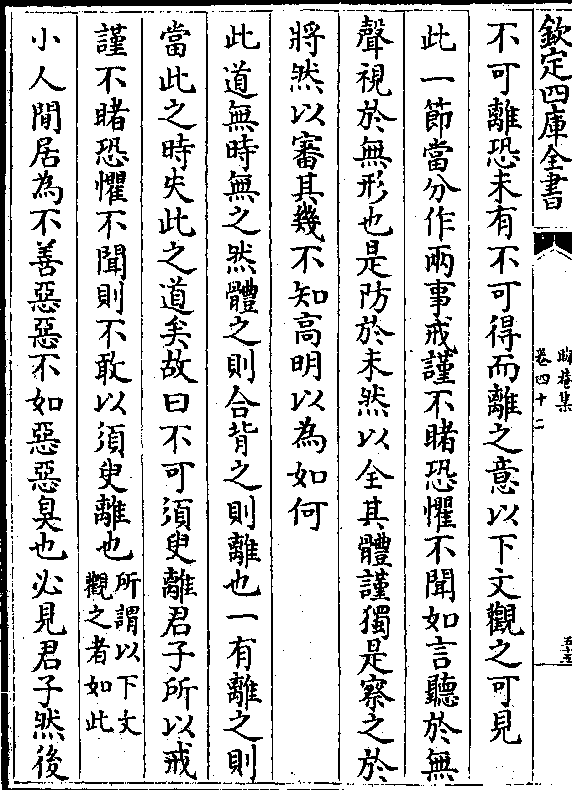 欽定四庫全書
晦菴集
卷四十二
不可離恐未有不可得而離之意以下文觀之可見
此一節當分作兩事戒謹不睹恐懼不聞如言聽於無
聲視於無形也是防於未然以全其體謹獨是察之於
將然以審其幾不知高明以為如何
此道無時無之然體之則合背之則離也一有離之則
當此之時失此之道矣故曰不可須臾離君子所以戒
謹不睹恐懼不聞則不敢以須臾離也所謂以下文觀之者如此
小人閒居為不善惡惡不如惡惡臭也必見君子然後